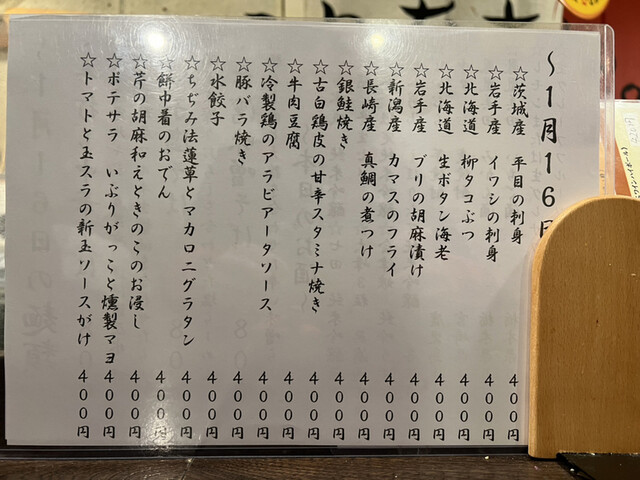 ～１月１６日
☆茨城産　平目の刺身　４００円
☆岩手産　イワシの刺身　４００円
☆北海道　柳タコぶつ　４００円
☆北海道　生ボタン海老　４００円
☆岩手産　ブリの胡麻漬け　４００円
☆新潟産　カマスのフライ　４００円
☆長崎産　真鯛の煮つけ　４００円
☆銀鮭焼き　４００円
☆古白鶏皮の甘辛スタミナ焼き　４００円
☆牛肉豆腐　４００円
☆冷製鶏のアラビアータソース　４００円
☆豚バラ焼き　４００円
☆水餃子　４００円
☆ちぢみ法蓮草とマカロニグラタン　４００円
☆餅巾着のおでん　４００円
☆芹の胡麻和えときのこのお浸し　４００円
☆ポテサラ　いぶりがっこと燻製マヨ　４００円
☆トマトと玉スラの新玉ソースがけ　４００円